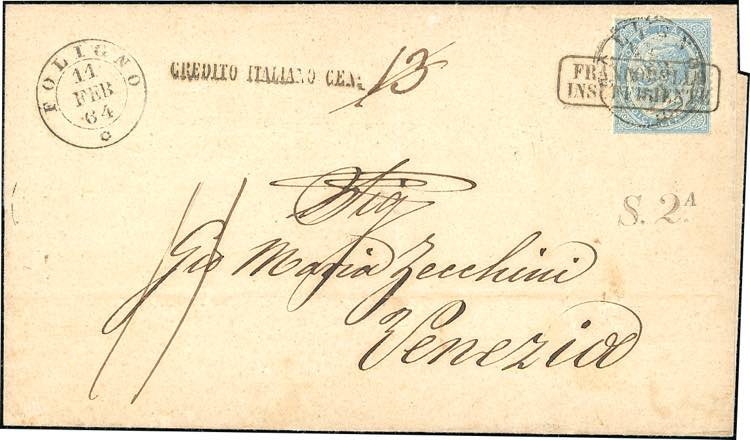 FOLIGNO
11
FEB
64
CREDITO ITALIANO CEN.
13
FRANCOBOLLO
INSUFFICIENTE
S. 2.A
Sig
Gio Maria Zecchini
Venezia